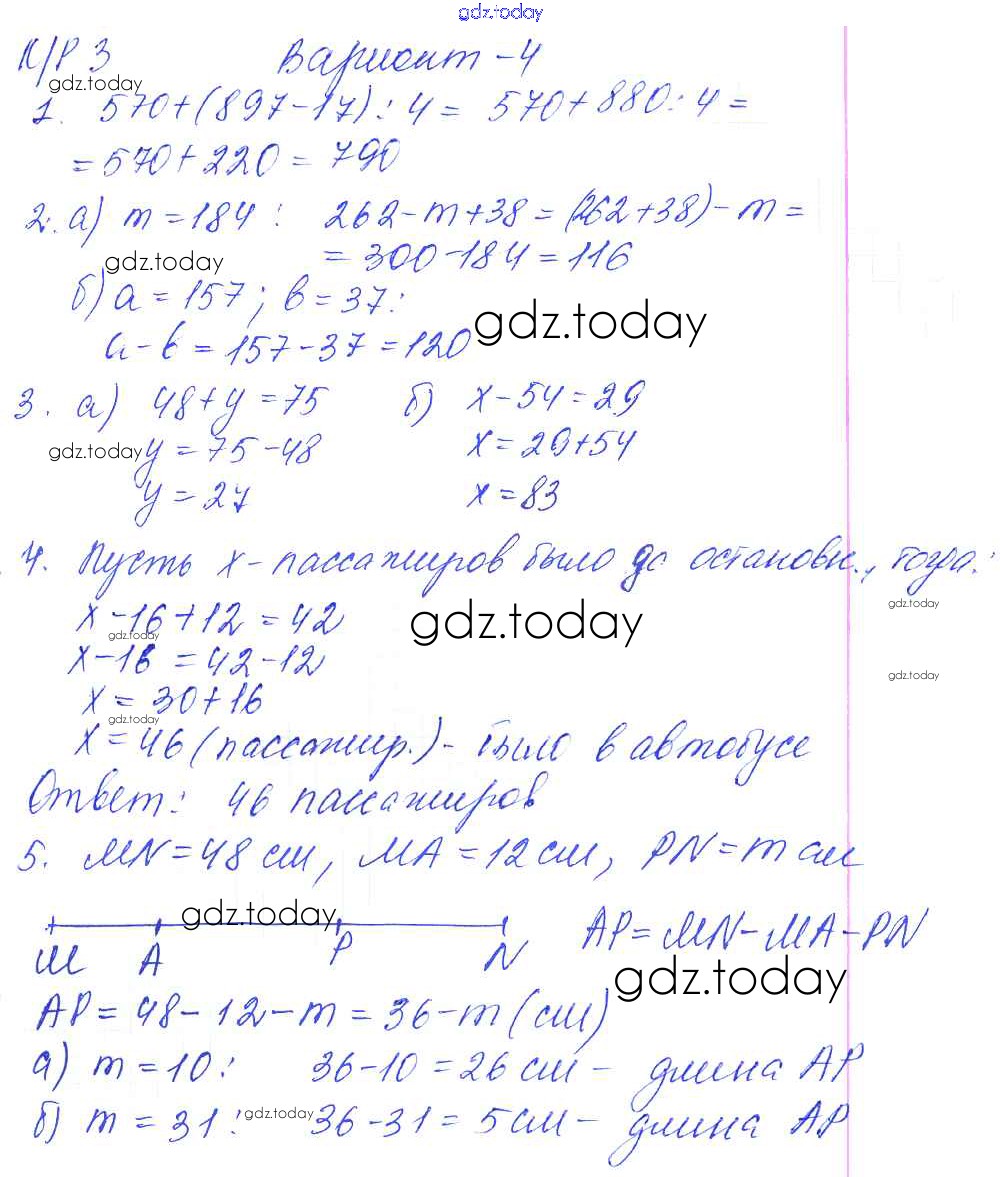 gdz.today
К/Р 3 Вариант-4
gdz.today
1. 570+(897-17):4= 570+880:4=
=570+220=790
2. а) m=184: 262-m+38=(262+38)-m=
gdz.today =300-184=116
б) a=157; b=37:
gdz.today
a-b=157-37=120
3. а) 48+y=75 б) x-54=29
gdz.today y=75-48 x=29+54
y=27 x=83
4. Пусть x-пассажиров было до остановк., тогда:
gdz.today
x-16+12=42 gdz.today
gdz.today
x-16=42-12
gdz.today
x=30+16
gdz.today
x=46(пассажир.)- было в автобусе
Ответ: 46 пассажиров
5. MN=48см, MA=12см, PN=m см
gdz.today
M A P N AP=MN-MA-PN
gdz.today
AP=48-12-m=36-m(см)
а) m=10: 36-10=26см- длина AP
б) m=31: gdz.today 36-31=5см- длина AP